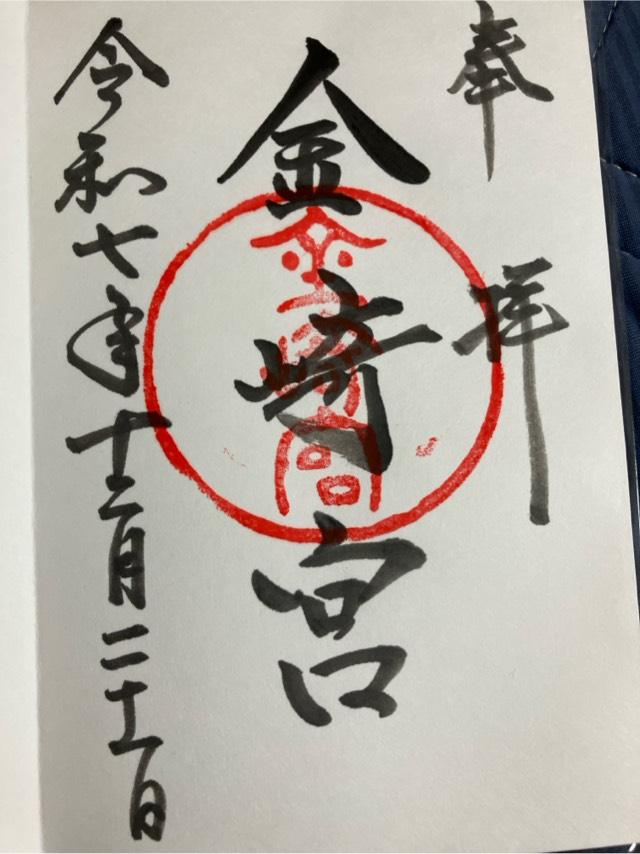 奉拝
金崎宮
金崎宮
令和七年十二月二十一日